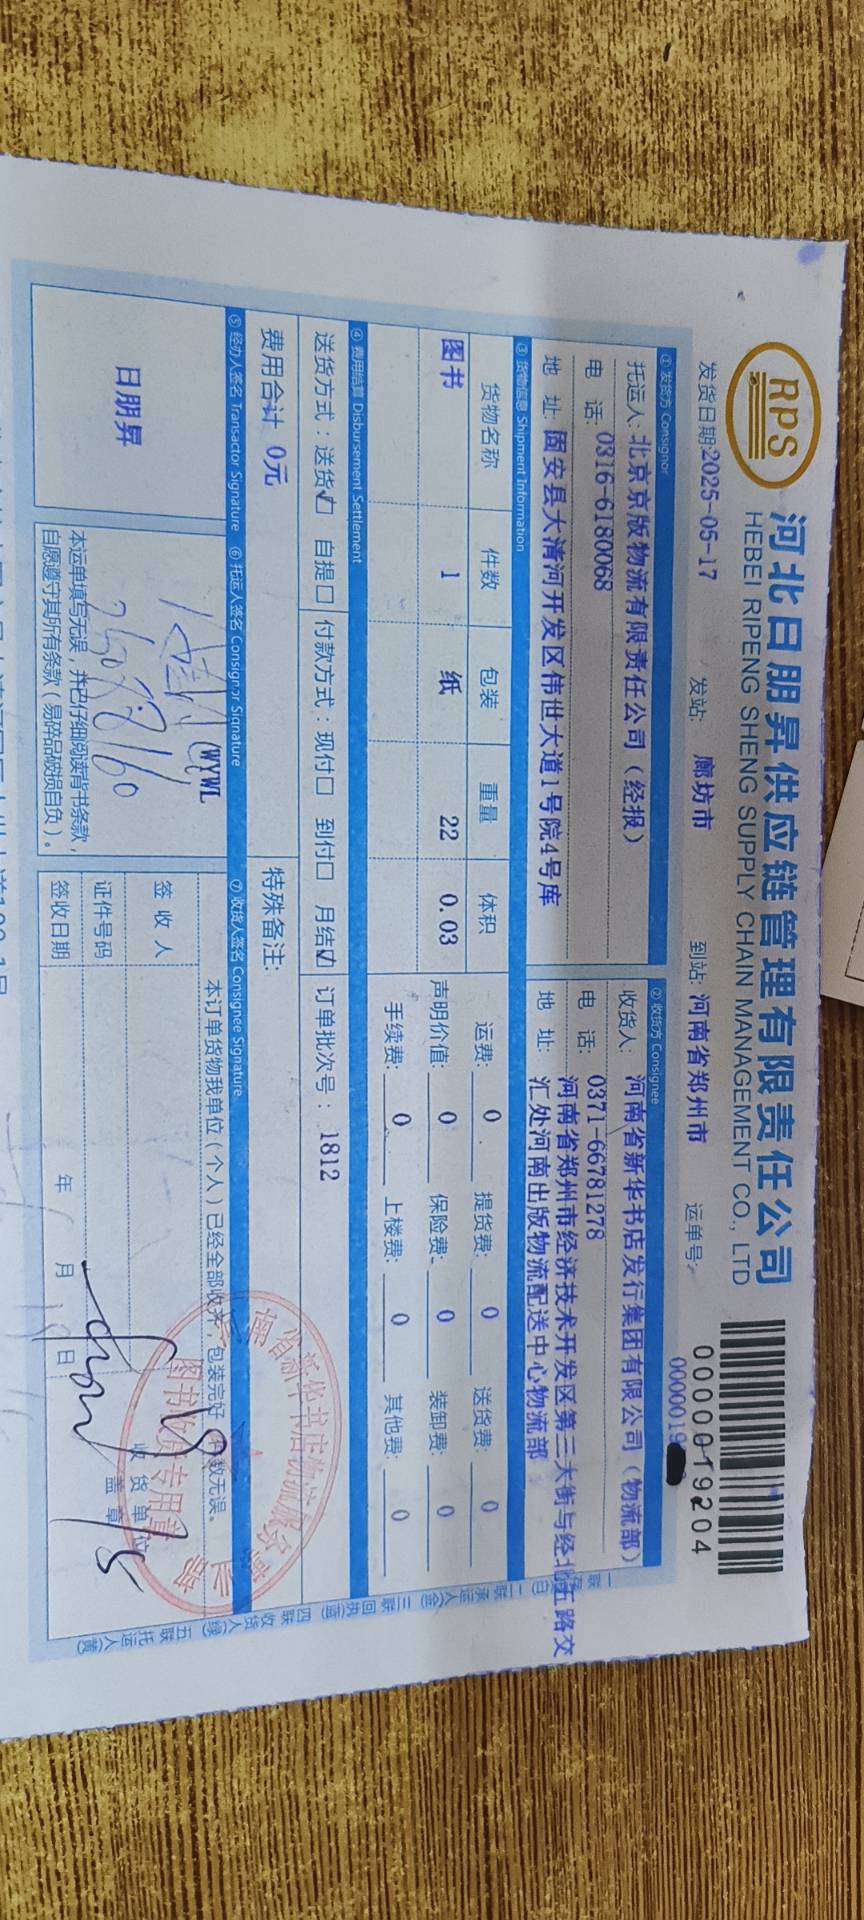 RPS
河北日朋昇供应链管理有限责任公司
HEBEI RIPENG SHENG SUPPLY CHAIN MANAGEMENT CO., LTD
0000019204
发货日期:2025-05-17 发站: 廊坊市 到站: 河南省郑州市 运单号:
① 发货方 Consignor
② 收货方 Consignee
托运人: 北京京版物流有限责任公司（经报）
收货人: 河南省新华书店发行集团有限公司（物流部）
电 话: 0316-6180068
电 话: 0371-66781278
地 址: 固安县大清河开发区伟世大道1号院4号库
地 址: 河南省郑州市经济技术开发区第三大街与经北五路交
汇处河南出版物流配送中心物流部
③ 货物信息 Shipment Information
货物名称 件数 包装 重量 体积
图书 1 纸 22 0.03
运费: 0 提货费: 0 送货费: 0
声明价值: 0 保险费: 0 装卸费: 0
手续费: 0 上楼费: 0 其他费: 0
④ 费用结算 Disbursement Settlement
送货方式：送货☑ 自提□ 付款方式：现付□ 到付□ 月结☑ 订单批次号：1812
费用合计 0元 特殊备注:
⑤ 经办人签名 Transactor Signature
⑥ 托运人签名 Consignor Signature
⑦ 收货人签名 Consignee Signature
日朋昇
WYWL
本运单填写无误，并已仔细阅读背书条款，
自愿遵守其所有条款（易碎品破损自负）。
本订单货物我单位（个人）已经全部收齐，包装完好，件数无误。
签 收 人
证件号码
签收日期 年 月 日
收货单位
盖章
图书收货专用章